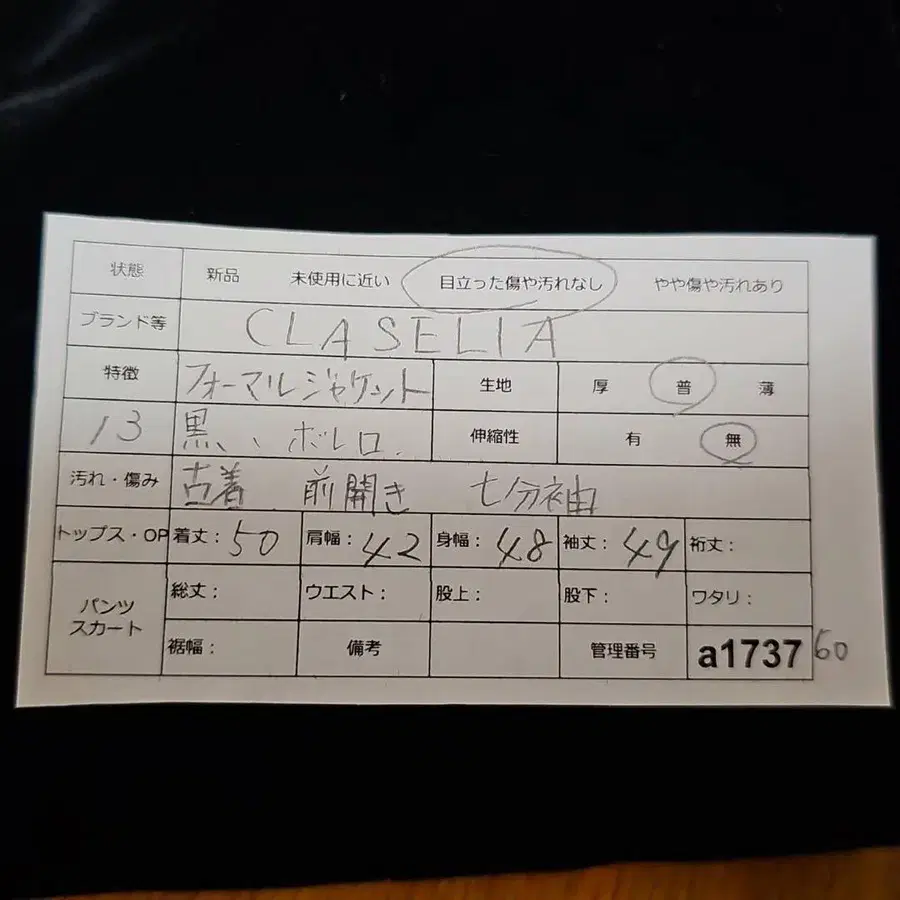 状態 新品 未使用に近い 目立った傷や汚れなし やや傷や汚れあり
ブランド等 CLASELIA
特徴 フォーマルジャケット 生地 厚 普 薄
13 黒、ボレロ. 伸縮性 有 無
汚れ・傷み 古着 前開き 七分袖
トップス・OP 着丈：50 肩幅：42 身幅：48 袖丈：49 裄丈：
パンツ スカート 総丈： ウエスト： 股上： 股下： ワタリ：
裾幅： 備考 管理番号 a1737 60